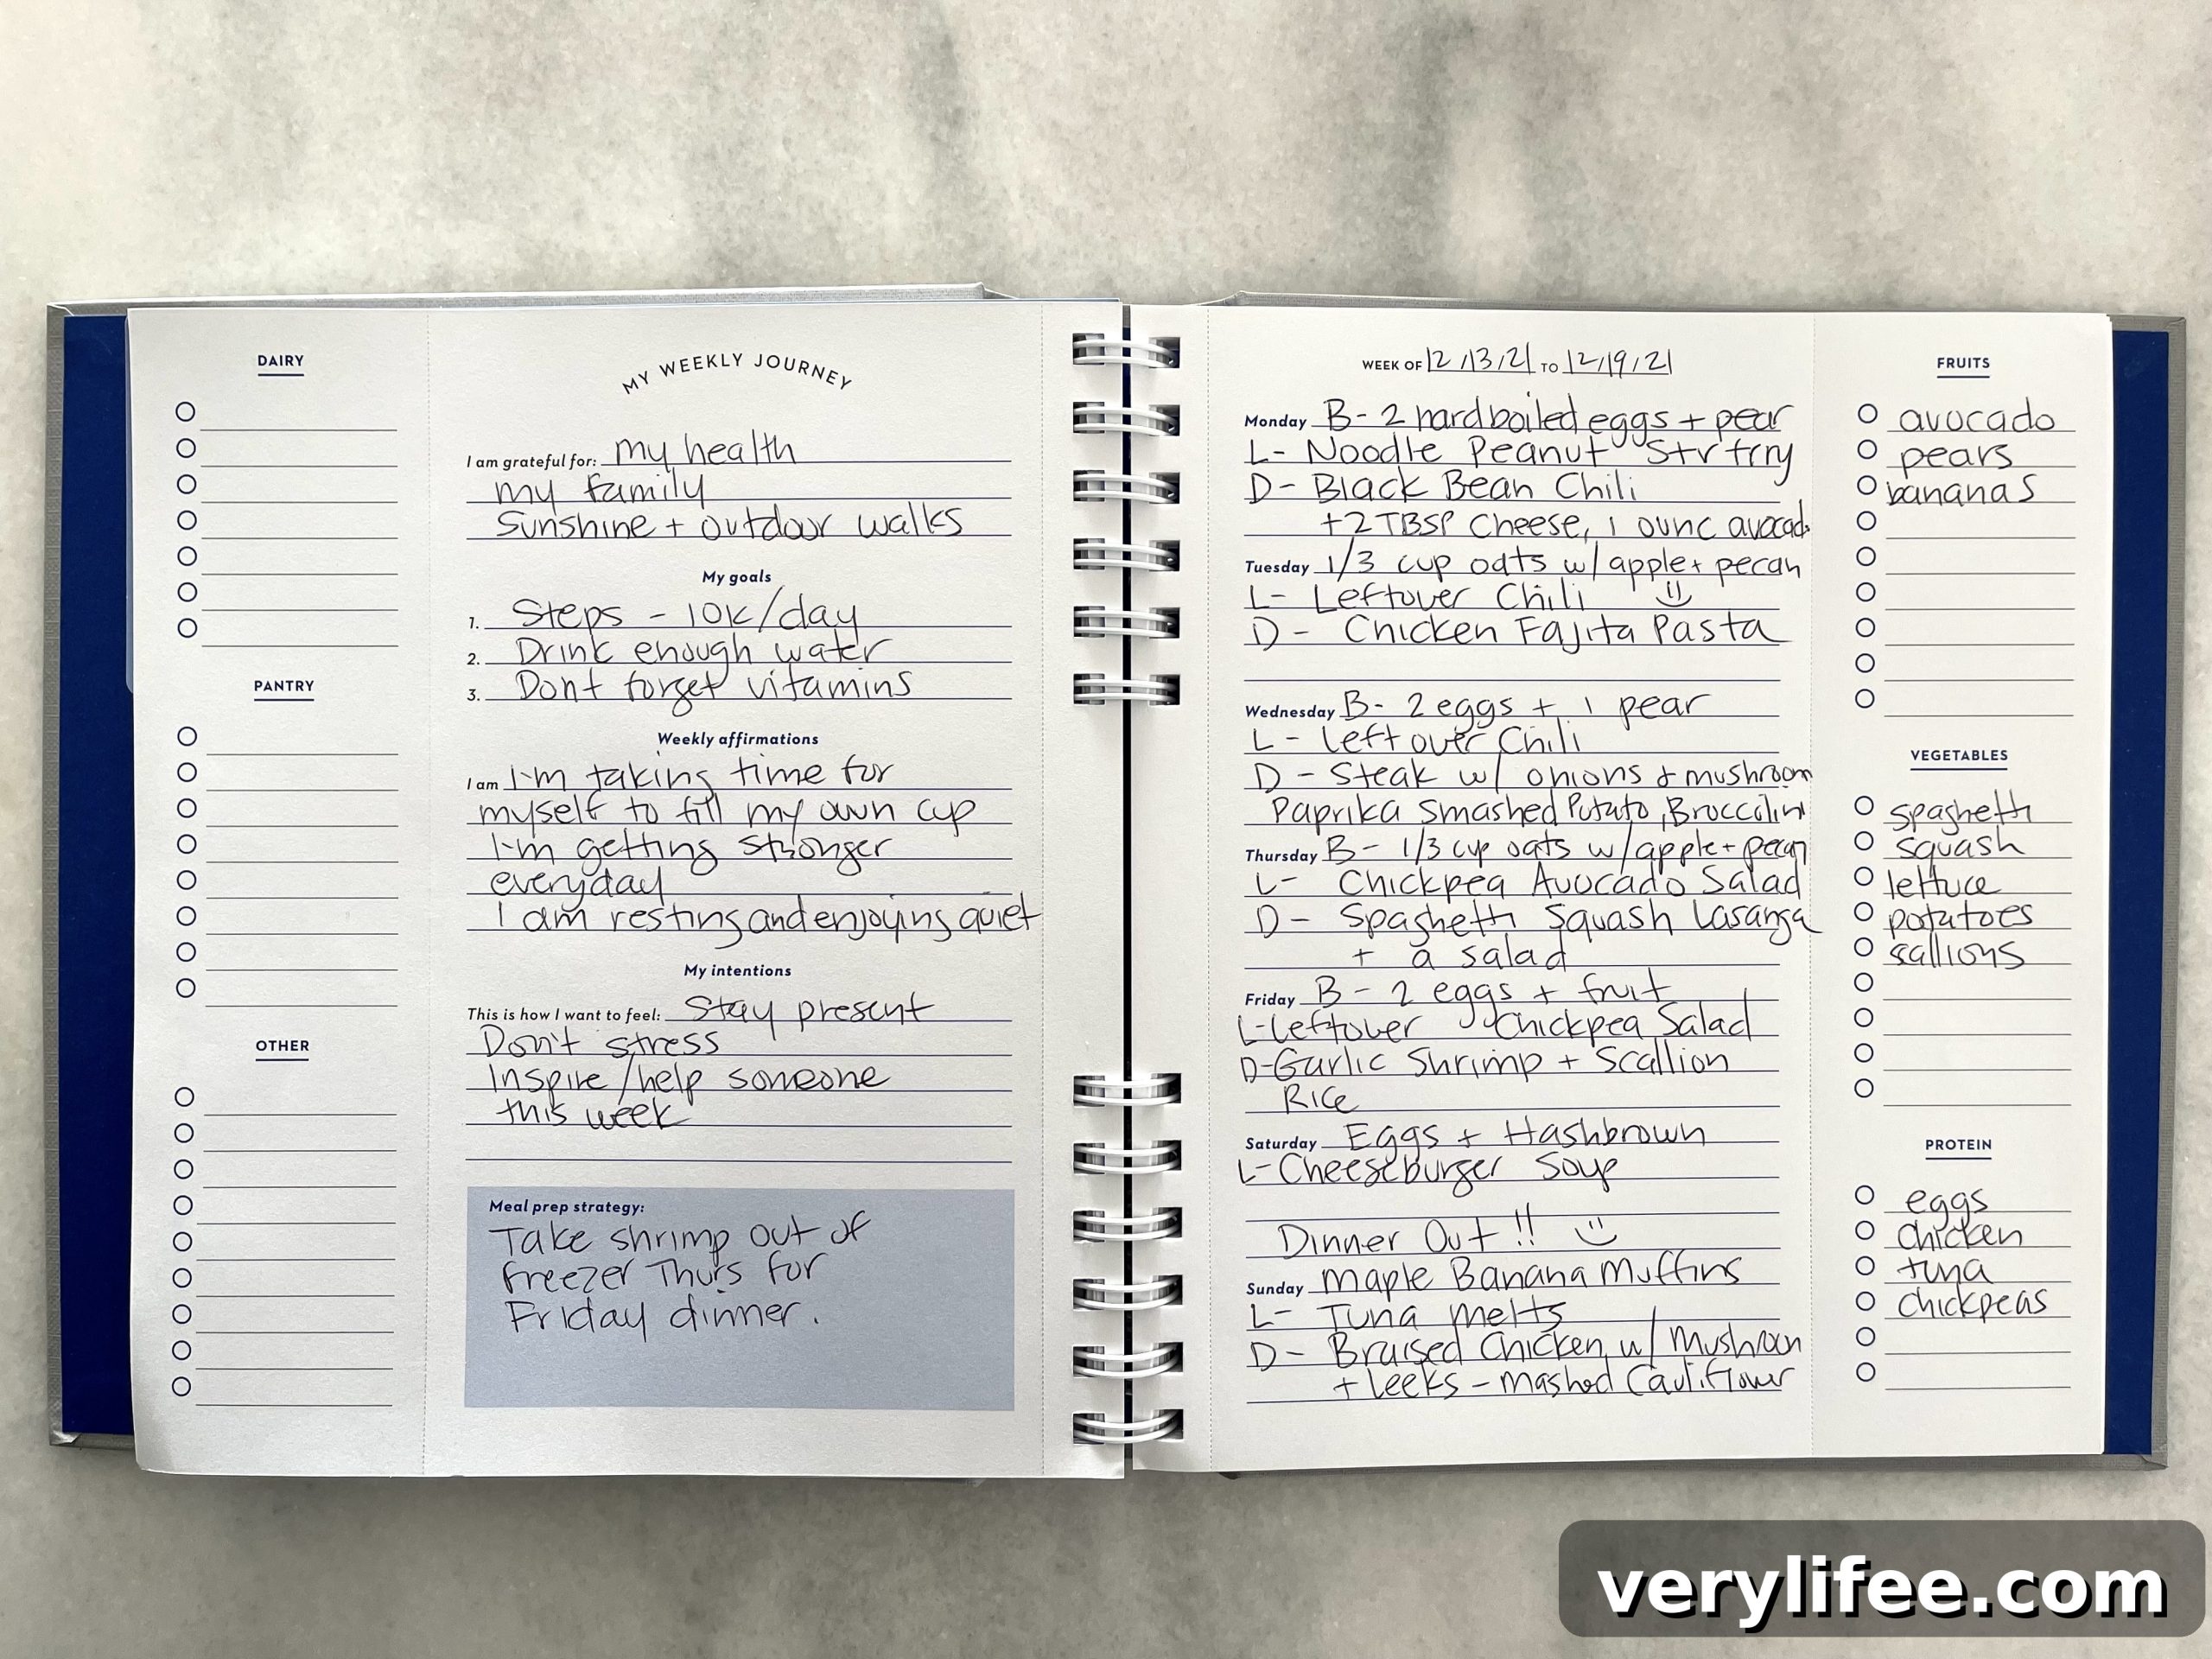 DAIRY
PANTRY
OTHER
MY WEEKLY JOURNEY
I am grateful for: my health
my family
Sunshine + outdoor walks
My goals
1. Steps - 10K/day
2. Drink enough water
3. Dont forget vitamins
Weekly affirmations
I am I'm taking time for
myself to fill my own cup
I'm getting stronger
everyday
I am resting and enjoying quiet
My intentions
This is how I want to feel: Stay present
Don't stress
Inspire/help someone
this week
Meal prep strategy:
Take shrimp out of
freezer Thurs for
Friday dinner.
WEEK OF 12/13/21 TO 12/19/21
Monday B- 2 hardboiled eggs + pear
L- Noodle Peanut Strfry
D- Black Bean Chili
+2 TBSP Cheese, 1 ounc avocad
Tuesday 1/3 cup oats w/ apple + pecan
L- Leftover Chili
D- Chicken Fajita Pasta
Wednesday B- 2 eggs + 1 pear
L- left over Chili
D- Steak w/ onions & mushroom
Paprika Smashed Potato, Broccolini
Thursday B- 1/3 cup oats w/ apple + pecan
L- Chickpea Avocado Salad
D- Spaghetti Squash Lasanga
+ a salad
Friday B- 2 eggs + fruit
L- Leftover Chickpea Salad
D- Garlic Shrimp + Scallion
Rice
Saturday Eggs + Hashbrown
L- Cheeseburger Soup
Dinner Out!!
Sunday Maple Banana Muffins
L- Tuna melts
D- Braised Chicken w/ Mushroom
+ leeks - mashed Cauliflower
FRUITS
avocado
pears
bananas
VEGETABLES
spaghetti
squash
lettuce
potatoes
sallions
PROTEIN
eggs
chicken
tuna
chickpeas
verylifee.com